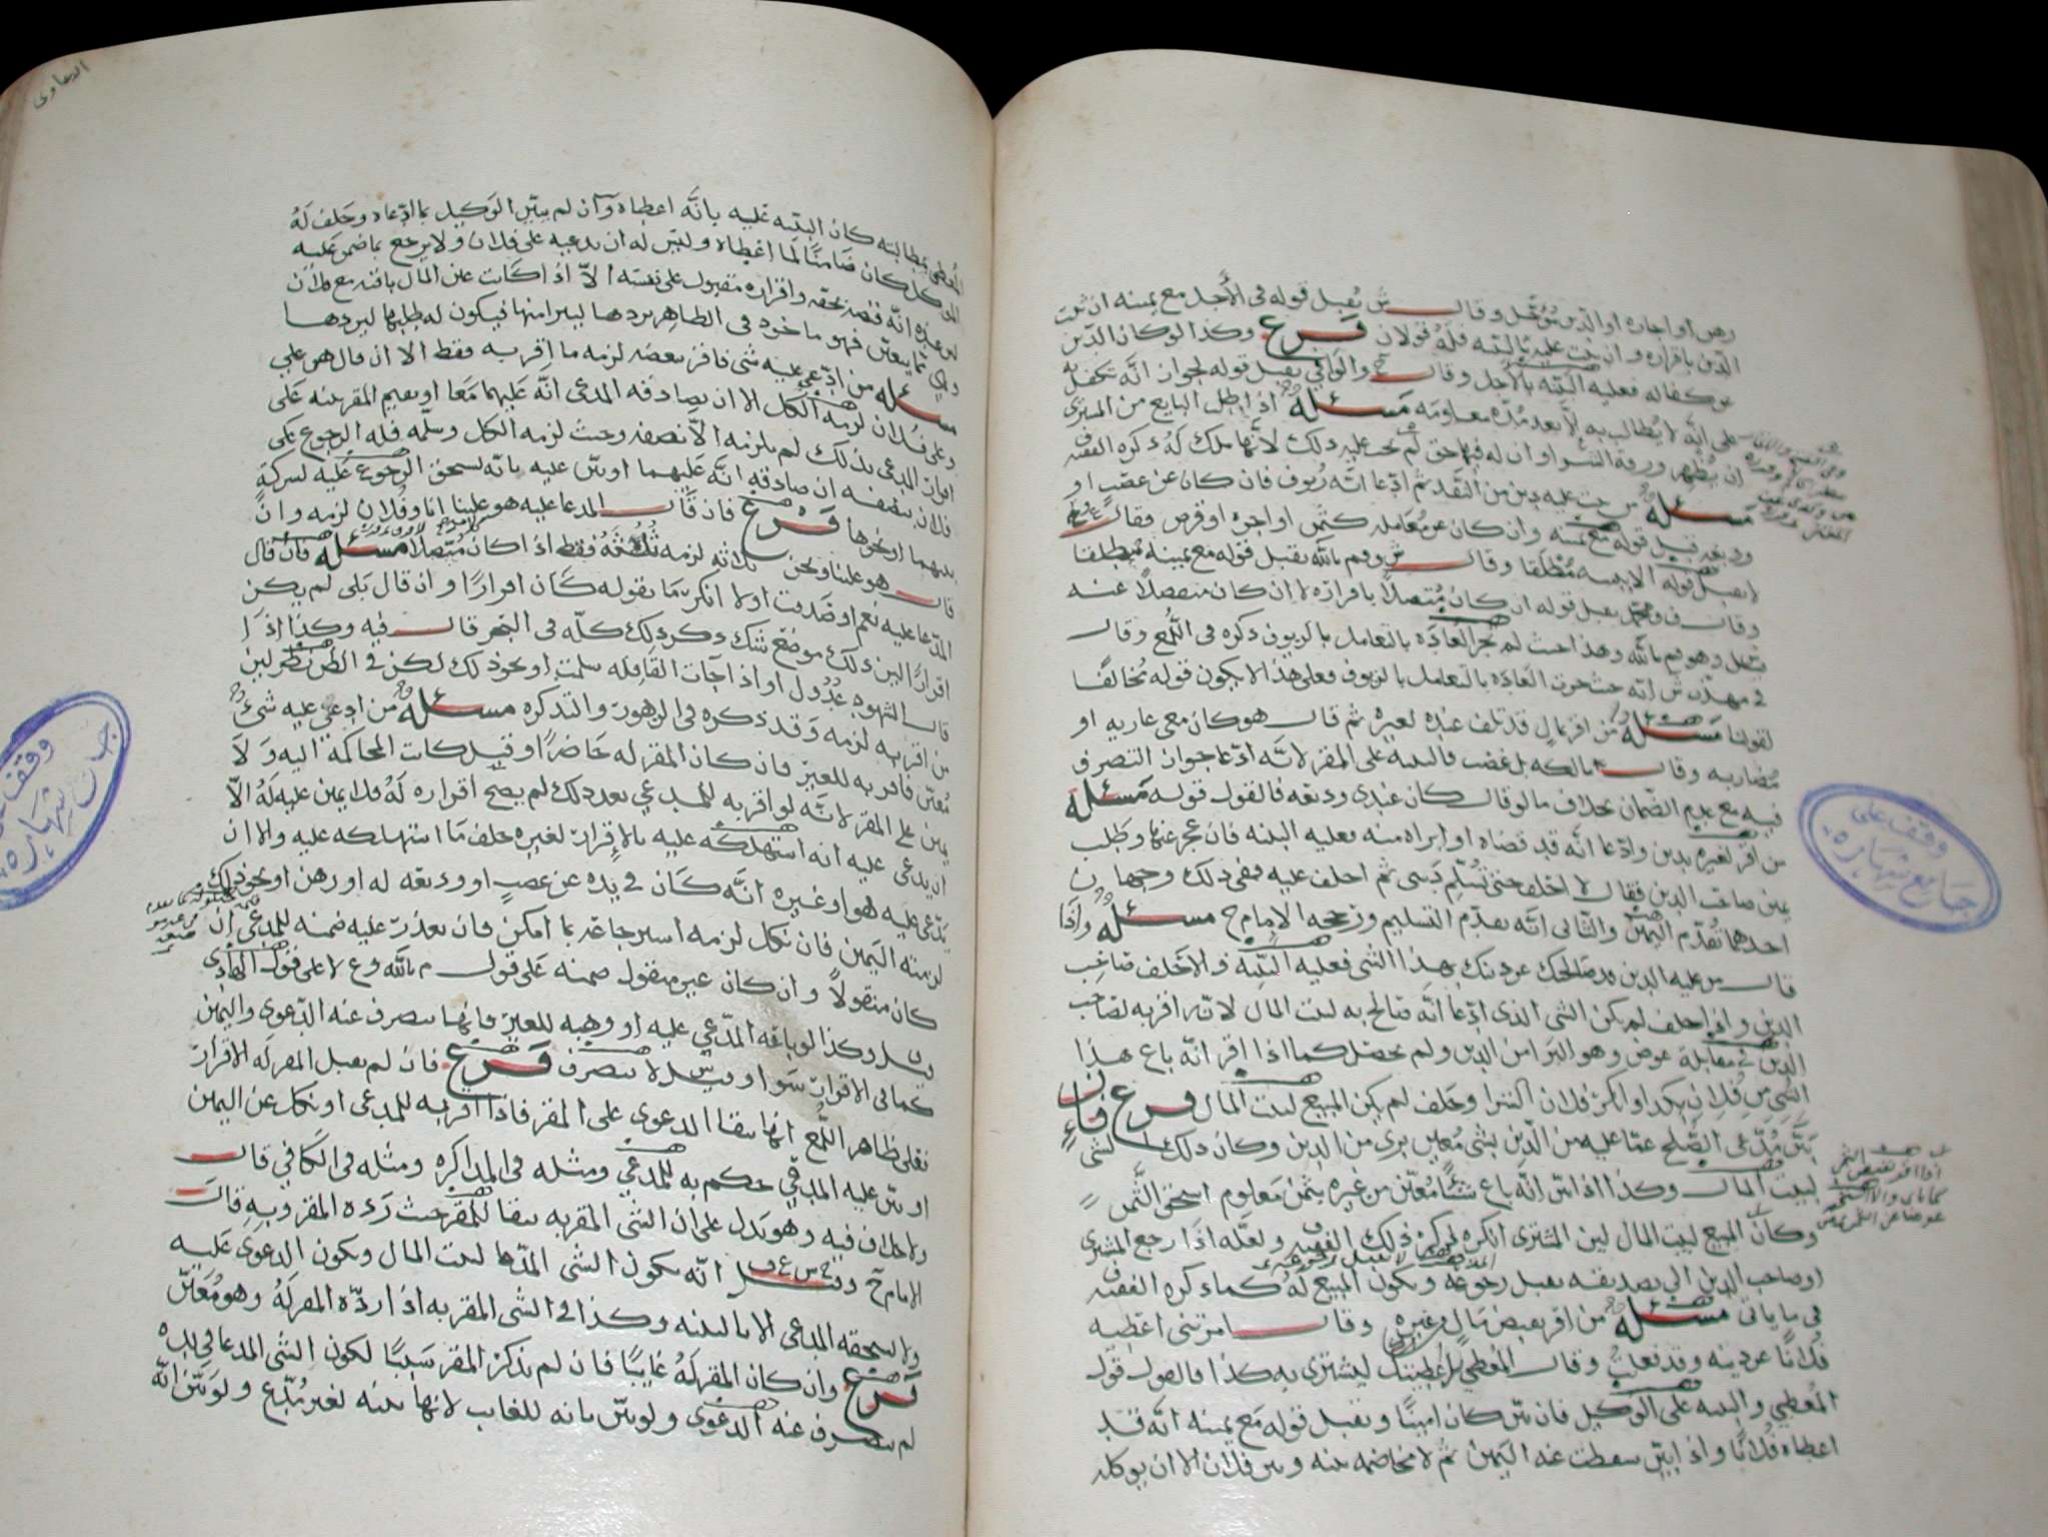 رهن او اجاره او الدين مؤجل وقال ش يُقبل قوله في الأجل مع يمينه ان ثبت
الدين باقراره وان ثبت عليه بالبينه فله قولان فرع وكذا لو كان الدين
عن كفاله فعليه البينه بالأجل وقال ح والوافي يقبل قوله لجواز انه تكفل به
على انه لا يُطالب به الا بعد مُدّه معلومه مسئله اذا طلب البايع من المشتري
ان يُظهر ورقة الشراء وان له فيها حق لم يجب عليه ذلك لأنها ملك له ذكره الفقيه
مسئله من ثبت عليه دين من النقد ثم ادّعا انه زيوف فان كان عن غصب او
وديعه قبل قوله مع يمينه وان كان عن معامله كثمن او اجره او قرض فقال
لا يقبل قوله الا ببينه مُطلقا وقال ش وم بالله يقبل قوله مع يمينه مُطلقا
وقال ف ومحمد يقبل قوله ان كان مُتصلاً باقراره لا ان كان منفصلاً عنه
قيل وهو م بالله وهذا حيث لم تجر العاده بالتعامل بالزيوف ذكره في اللُّمع وقال
في مهذب ش انه حيث جرت العاده بالتعامل بالزيوف فعلى هذا لا يكون قوله مُخالفًا
لقولنا مسئله من اقر بمال قد تلف عنده لغيره ثم قال هو كان معي عاريه او
مُضاربه وقال مالكه بل غصب فالبينه على المقر لانه ادّعا جواز التصرف
فيه مع عدم الضمان بخلاف ما لو قال كان عندي وديعه فالقول قوله مسئله
من اقر لغيره بدين وادّعا انه قد قضاه او ابراه منه فعليه البينه فان عجز عنها وطلب
يمين صاحب الدين فقال لا احلف حتى تُسلّم ديني ثم احلف عليه ففي ذلك وجهان
احدهما تقدّم اليمين والثاني انه يقدّم التسليم ورجحه الامام ح مسئله واذا
قال من عليه الدين قد صالحتك عن دينك بهذا الشي فعليه البيّنة والا حلف صاحب
الدين واذا حلف لم يكن الشي الذي ادّعا انه صالح به لبيت المال لانه اقر به لصاحب
الدين في مقابلة عوض وهو البرا من الدين ولم يحصل كما اذا اقر انه باع هذا
الشي من فلان بكذا وانكر فلان الشرا وحلف لم يكن المبيع لبيت المال فرع فان
بيّن مُدّعي الصلح عمّا عليه من الدين بشي مُعين بري من الدين وكان ذلك الشي
لبيت المال وكذا اذا بيّن انه باع شيئًا مُعيّن من غيره بثمن معلوم استحق الثمن
وكان المبيع لبيت المال لان المشتري انكره ذكره ذلك الفقيه ولعلّه اذا رجع المشتري
او صاحب الدين الى تصديقه يقبل رجوعه ويكون المبيع له كما ذكره الفقيه
في ما ياتي مسئله من اقر بقبض مال غيره وقال امرتني اعطيه
فلانًا عن دينه وقد فعلت وقال المُعطي بل اعطيتك ليشتري به كذا فالقول قول
المُعطي والبينه على الوكيل فان بيّن كان امينًا ويقبل قوله مع يمينه انه قد
اعطاه فلانًا واذا بيّن سقطت عنه اليمين ثم لا مخاصمه بينه وبين فلان الا ان يوكله
وقف على
جامع شهاره
الدعاوى
المُعطي بمطالبته كان البينه عليه بانه اعطاه وان لم يبيّن الوكيل بما ادّعاه وحلف له
الموكل كان ضامنًا لما اعطاه وليس له ان يدعيه على فلان ولا يرجع بما ضمن عليه
لو عنده انه قبضه بحقه واقراره مقبول على نفسه الا اذا كانت عين المال باقيه مع فلان
وهي مما يتعيّن فهو ماخوذ في الظاهر بردها ليبرا منها فيكون له طلبها ليردها
مسئله من ادّعي عليه شي فاقر ببعضه لزمه ما اقر به فقط الا ان قال هو علي
وعلى فلان لزمه الكل الا ان يصادقه المدعي انه عليهما معًا او يقيم المقر بينه على
اقرار المدعي بذلك لم يلزمه الا نصفه وحيث لزمه الكل وسلّمه فله الرجوع على
فلان بنصفه ان صادقه انه عليهما او بيّن عليه بانه يستحق الرجوع عليه لشركة
بينهما او نحوها فرع فان قال المدعا عليه هو علينا انا وفلان لزمه وان
قال هو علينا ونحن ثلاثه لزمه ثُلُثه فقط اذا كان مُتصلاً مسئله فان قال
المدّعا عليه نعم او صدقت او لا انكر ما تقوله كان اقرارًا وان قال بلى لم يكن
اقرارًا الين ذلك موضع شك ذكر ذلك كلّه في البحر قال فيه وكذا اذا
قال الشهود عُدُول او اذا جات القافله سلمت او نحو ذلك لكن في الطرفين نظر لين
من اقر به لزمه وقد ذكره في الزهور والتذكره مسئله من ادعي عليه شي
مُعيّن فاقر به للغير فان كان المقر له حاضرًا وقبل كانت المحاكمة اليه ولا
يمين على المقر لانه لو اقر به للمدعي بعد ذلك لم يصح اقراره له فلا يمين عليه له الا
ان يدعي عليه انه استهلكه عليه بالاقرار لغيره حلف ما استهلكه عليه والا ان
يدّعى عليه هو او غيره انه كان في يده عن غصب او وديعه له او رهن او نحو ذلك
لزمته اليمين فان نكل لزمه استرجاعه بما امكن فان تعذر عليه ضمنه للمدعي ان
كان منقولاً وان كان غير منقول ضمنه على قول م بالله وع لا على قول الهادي
قيل وكذا لو باعه المدّعي عليه او وهبه للغير فانها تنصرف عنه الدعوى واليمين
كما في الاقرار سوا وقيل س لا تنصرف فرع فان لم يقبل المقر له الاقرار
فعلى ظاهر اللُّمع انها تبقا الدعوى على المقر فاذا اقر به للمدعي او نكل عن اليمين
او بيّن عليه المدعي حكم به للمدعي ومثله في المذاكره ومثله في الكافي قال
ولا خلاف فيه وهو يدل على ان الشي المقر به يبقا للمقر حيث رده المقر وبه قال
الامام ح وقيل ح س ع ف انه يكون الشي المدّعا لبيت المال ويكون الدعوى عليه
ولا يستحقه المدعي الا بالبينه وكذا في الشي المقر به اذا ردّه المقر له وهو مُعيّن
فرع وان كان المقر له غايبًا فان لم يذكر المقر سببًا لكون الشي المدعا في يده
لم تنصرف عنه الدعوى ولو بيّن بانه للغايب لانها بينه لغير مُدّع ولو بيّن انه
وقف
جامع شهاره